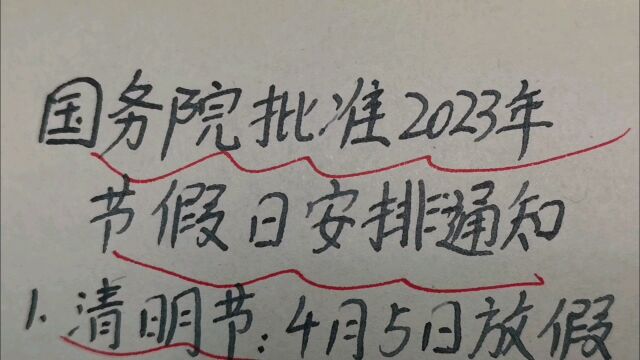 国务院批准2023年
节假日安排通知
1.清明节:4月5日放假